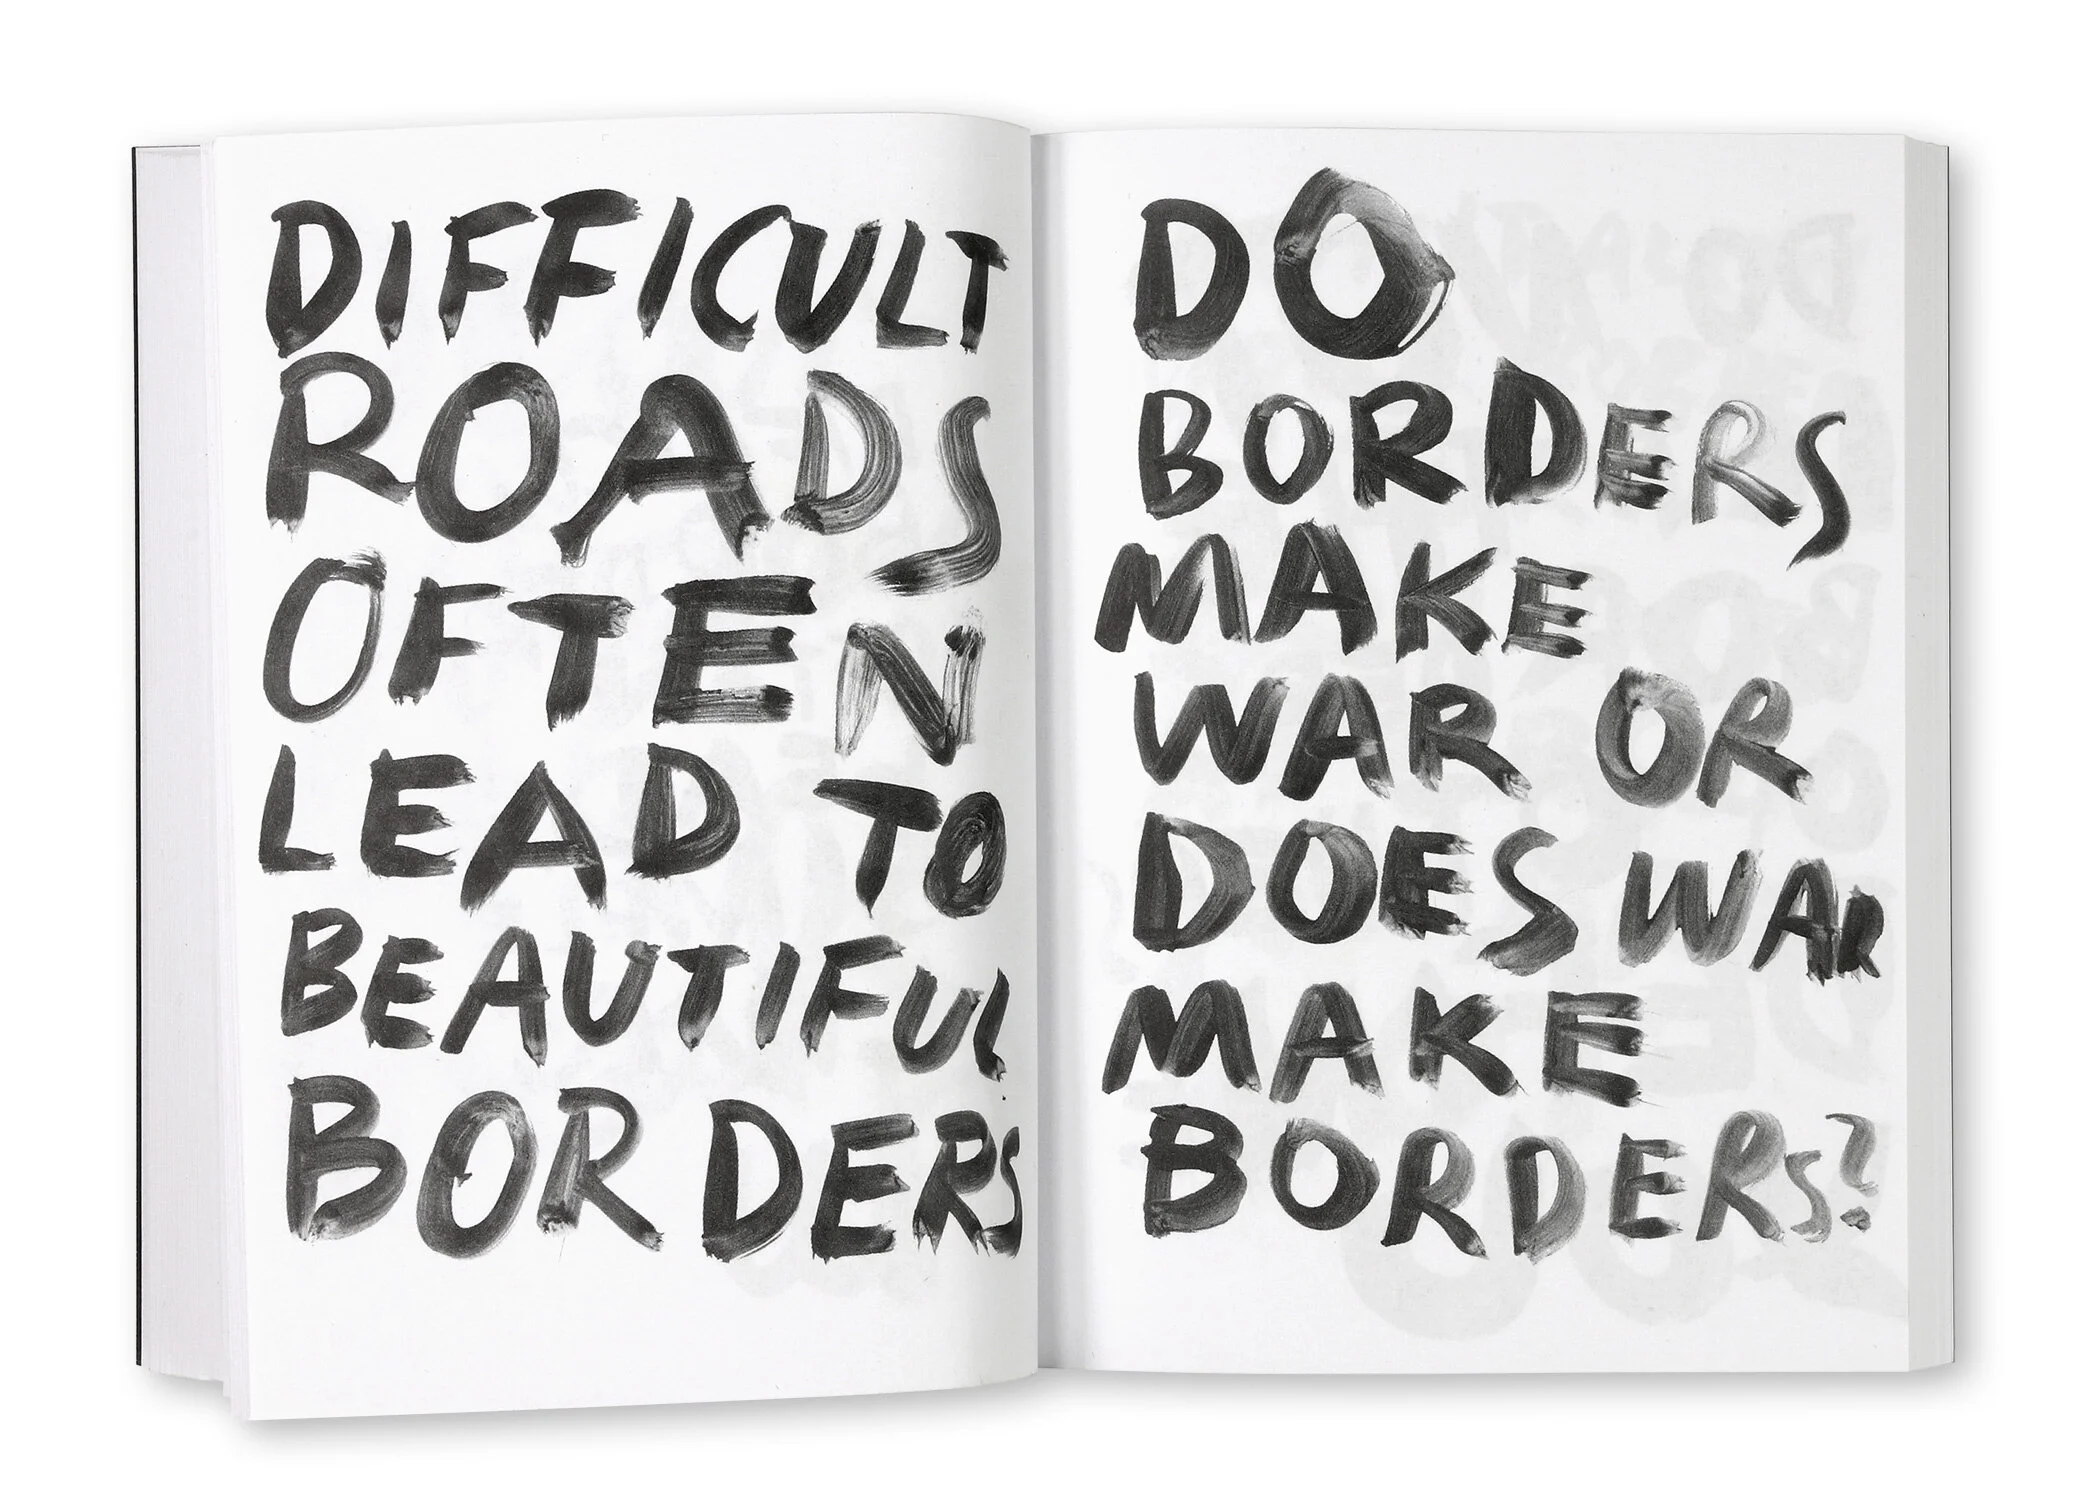 DIFFICULT
ROADS
OFTEN
LEAD TO
BEAUTIFUL
BORDERS
DO
BORDERS
MAKE
WAR OR
DOES WAR
MAKE
BORDERS?